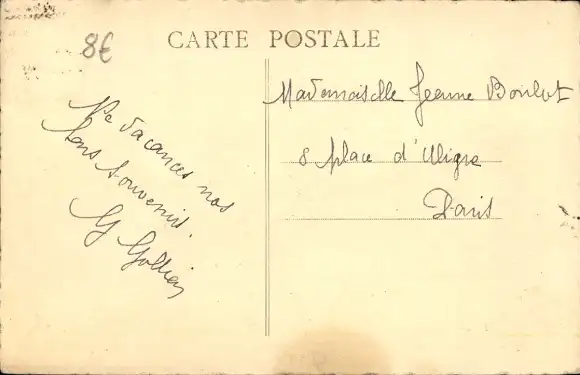 8€
CARTE POSTALE
De Vacances nos
bons souvenirs.
G
Mademoiselle Jeanne
8 place d'Aligre
Paris